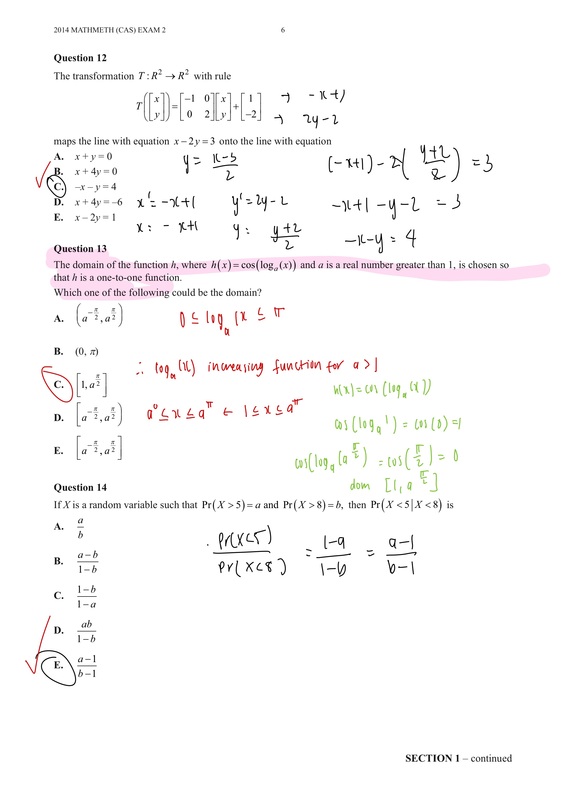 2014 MATHMETH (CAS) EXAM 2 6
Question 12
The transformation T : R² → R² with rule
T([x y]) = [−1 0 0 2][x y] + [1 −2] → -x+1
→ 2y-2
maps the line with equation x − 2y = 3 onto the line with equation
A. x + y = 0
B. x + 4y = 0
C. −x − y = 4
D. x + 4y = −6
E. x − 2y = 1
y = (x-3)/2
x' = -x+1 y' = 2y-2
x = -x+1 y = (y+2)/2
(-x+1) - 2((y+2)/2) = 3
-x+1-y-2 = 3
-x-y = 4
Question 13
The domain of the function h, where h(x) = cos(logₐ(x)) and a is a real number greater than 1, is chosen so
that h is a one-to-one function.
Which one of the following could be the domain?
A. (a^(−π/2), a^(π/2))
B. (0, π)
C. [1, a^(π/2)]
D. [a^(−π/2), a^(π/2))
E. [a^(−π/2), a^(π/2)]
0 ≤ logₐ(x ≤ π
∴ logₐ(x) increasing function for a > 1
a⁰ ≤ x ≤ a^π ← 1 ≤ x ≤ a^π
h(x) = cos(logₐ(x))
cos(logₐ1) = cos(0) = 1
cos(logₐ(a^(π/2)) = cos(π/2) = 0
dom [1, a^(π/2)]
Question 14
If X is a random variable such that Pr(X > 5) = a and Pr(X > 8) = b, then Pr(X < 5 | X < 8) is
A. a/b
B. (a − b)/(1 − b)
C. (1 − b)/(1 − a)
D. ab/(1 − b)
E. (a − 1)/(b − 1)
Pr(X<5)/Pr(X<8) = (1-a)/(1-b) = (a-1)/(b-1)
SECTION 1 – continued